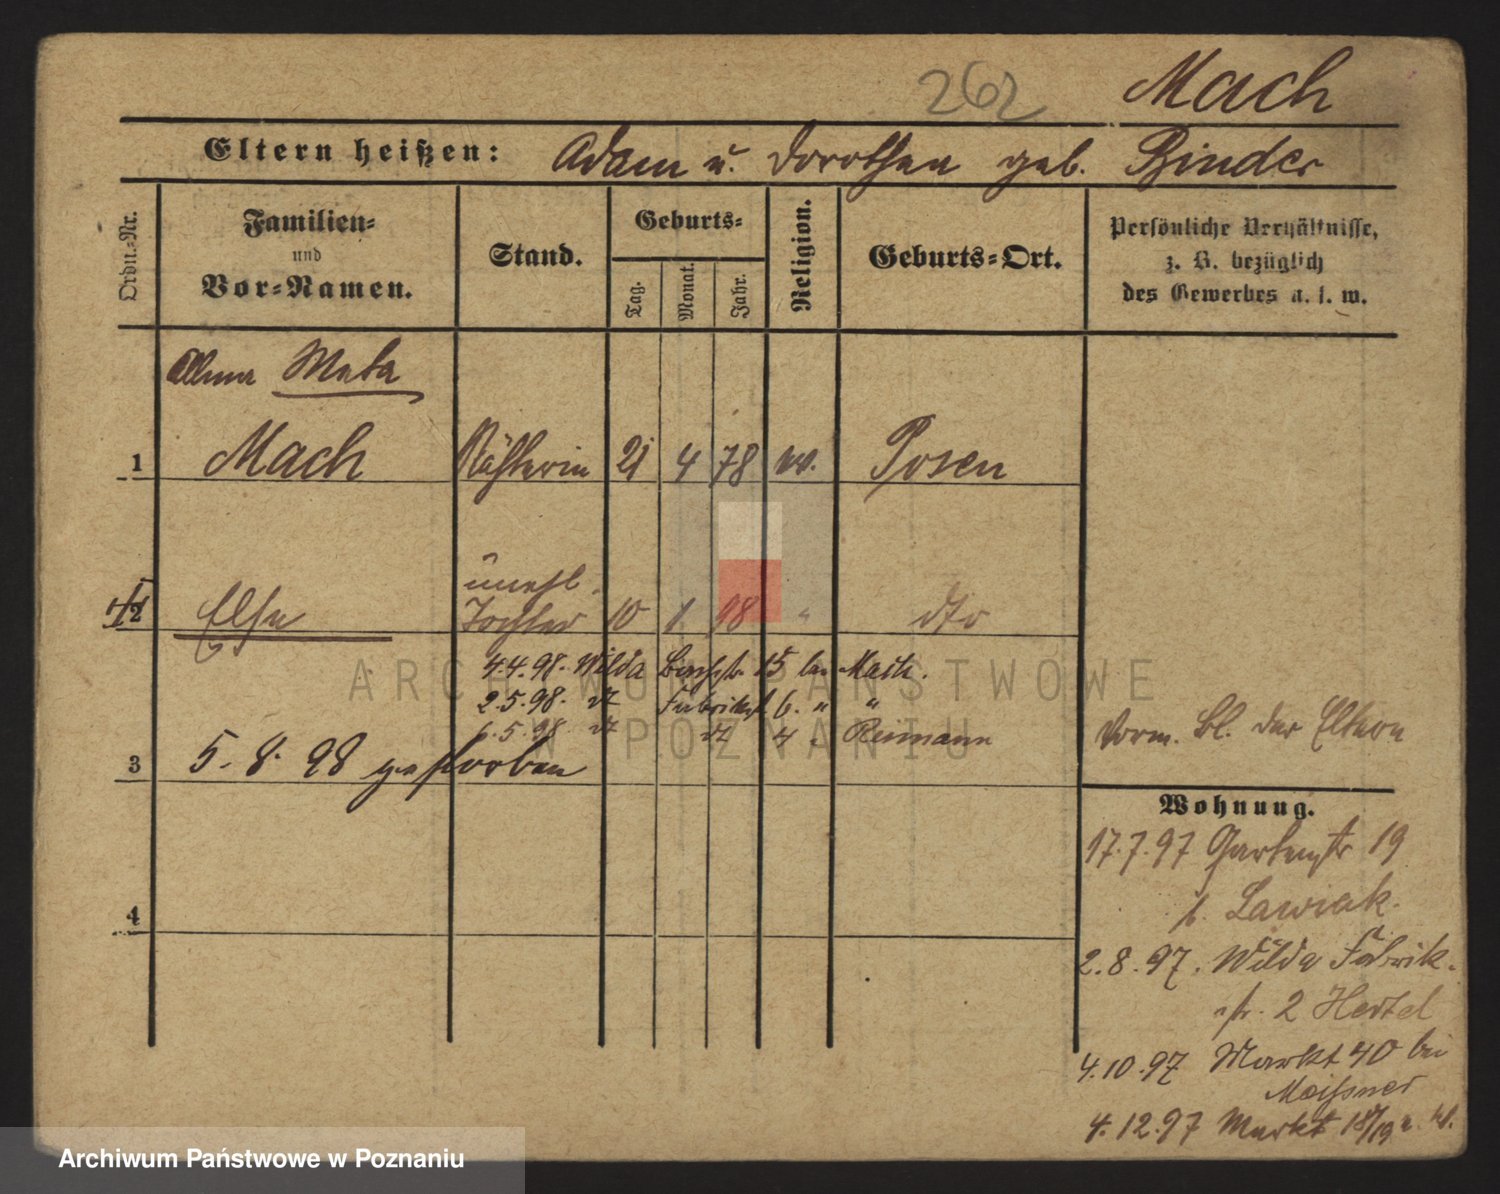 262 Mach
Eltern heißen: Adam u. Dorothea geb. Binder
Ordn.-Nr.
Familien-
und
Vor-Namen.
Stand.
Geburts-
Tag.
Monat.
Jahr.
Religion.
Geburts-Ort.
Persönliche Verhältnisse,
z. B. bezüglich
des Gewerbes u. s. w.
Meta
1 Mach Nähterin 21 4 78 Posen
unehl.
2 Else Tochter 10 1 98 " dto
4.4.98. Wilda 15 bei Mach.
2.5.98. dt Fabrikstr. 6. " "
6.5.98 dt dt 4 " Reimann
3 5.8.98 gestorben
Vorm. Bl. der Eltern
Wohnung.
17.7.97 Gartenstr 19
b. Lawiak.
2.8.97. Wilda Fabrik-
str. 2 Hertel
4.10.97 Markt 40 bei
Meißner
4.12.97 Markt 18/19
4
ARCHIWUM PAŃSTWOWE
W POZNANIU
Archiwum Państwowe w Poznaniu